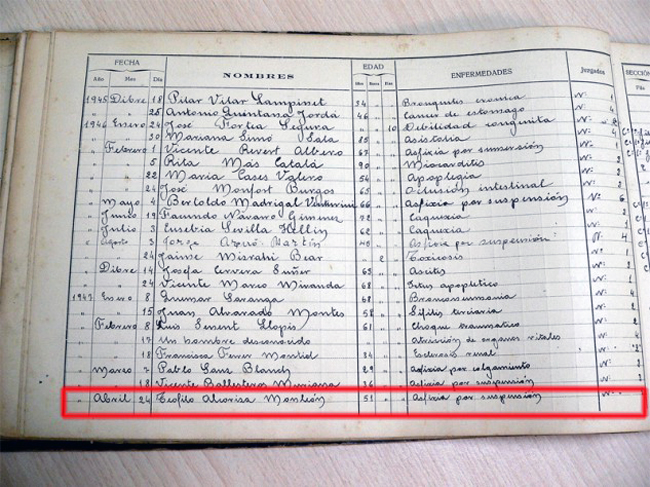 FECHA NOMBRES EDAD ENFERMEDADES Juzgados SECCIÓN
Año Mes Día
1945 Dibre 18 Pilar Vilar Lampinet 54 " " Bronquitis cronica Nº 1
" " 25 Antonio Quintana Jordá 46 " " Cancer de estomago Nº
1946 Enero 24 José Portla Segura " " 10 Debilidad congenita Nº
" " 30 Mariana Simó Sala 85 " " Asistolia Nº
" Febrero 1 Vicente Revert Albero 67 " " Asfixia por sumersión Nº
" " 5 Rita Más Catalá 90 " " Miocarditis Nº 2
" " 22 Maria Cases Valero 54 " " Apoplegia Nº 2
" " 24 José Monfort Burgos 65 " " Oclusión intestinal Nº 2
" Mayo 4 Bertoldo Madrigal 66 " " Asfixia por suspensión Nº 6
" Junio 19 Facundo Navarro Gimenez 72 " " Caquexia Nº
" Julio 3 Eusebia Sevilla Hellin 62 " " Caquexia Nº 1
" Agosto 3 Jorge Martín " " Asfixia por suspensión Nº 4
" " 24 Jaime Misrahi Bear " 2 " Toxicosis Nº
" Dibre 14 Josefa Cervera Suñer 63 " " Ascitis Nº 2
" " 24 Vicente Marco Miranda 68 " " Ictus apopletico Nº
1947 Enero 8 Gunmar Laranga 68 " " Bronconeumonia Nº
" " 15 Juan Alvarado Montes 58 " " Sifilis terciaria Nº 2
" Febrero 8 Luis Sesent Llopis 61 " " Choque traumatico Nº 1
" " 17 Un hombre desconocido " " de organos vitales Nº
" " 18 Francisca Ferrer " " Esclerosis renal Nº
" Marzo 7 Pablo Sanz Blanch 29 " " Asfixia por colgamiento Nº 2
" " 18 Vicente Ballesteros 36 " " Asfixia por suspensión Nº
" Abril 24 Teofilo Alcorisa Monleón 51 " " Asfixia por suspensión Nº